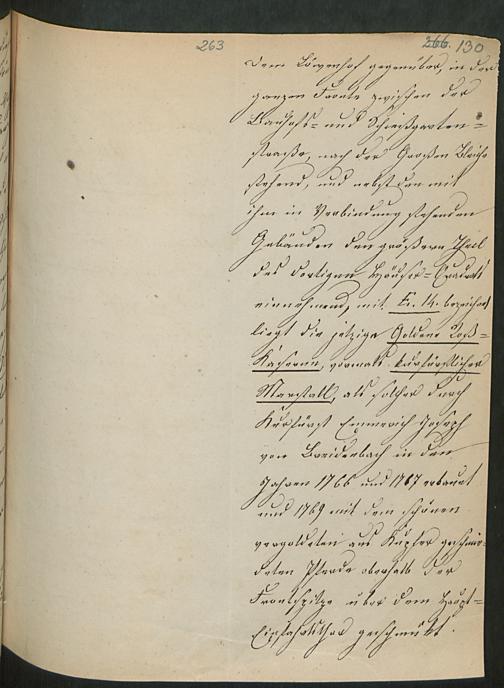 263
266. 130
dem Löwenhof gegenüber, in der
ganzen Fronte zwischen der
Bauhofs- und Schießgarten-
straße, nach der Großen Bleiche
stehend, und nebst den mit
ihm in Verbindung stehenden
Gebäuden den größern Theil
des dortigen Häuser-Quadrats
einnehmend, mit bezeichnet
liegt die jetzige Goldene Roß-
Kaserne, vormals kurfürstlicher
Marstall, als solcher durch
Kurfürst Emmerich Joseph
von Breidenbach in den
Jahren 1766 und 1767 erbaut
und 1769 mit dem schönen
vergoldeten aus Kupfer geschmie-
deten Pferde oberhalb der
Frontspitze über dem Haupt-
Einfahrtsthor geschmückt.